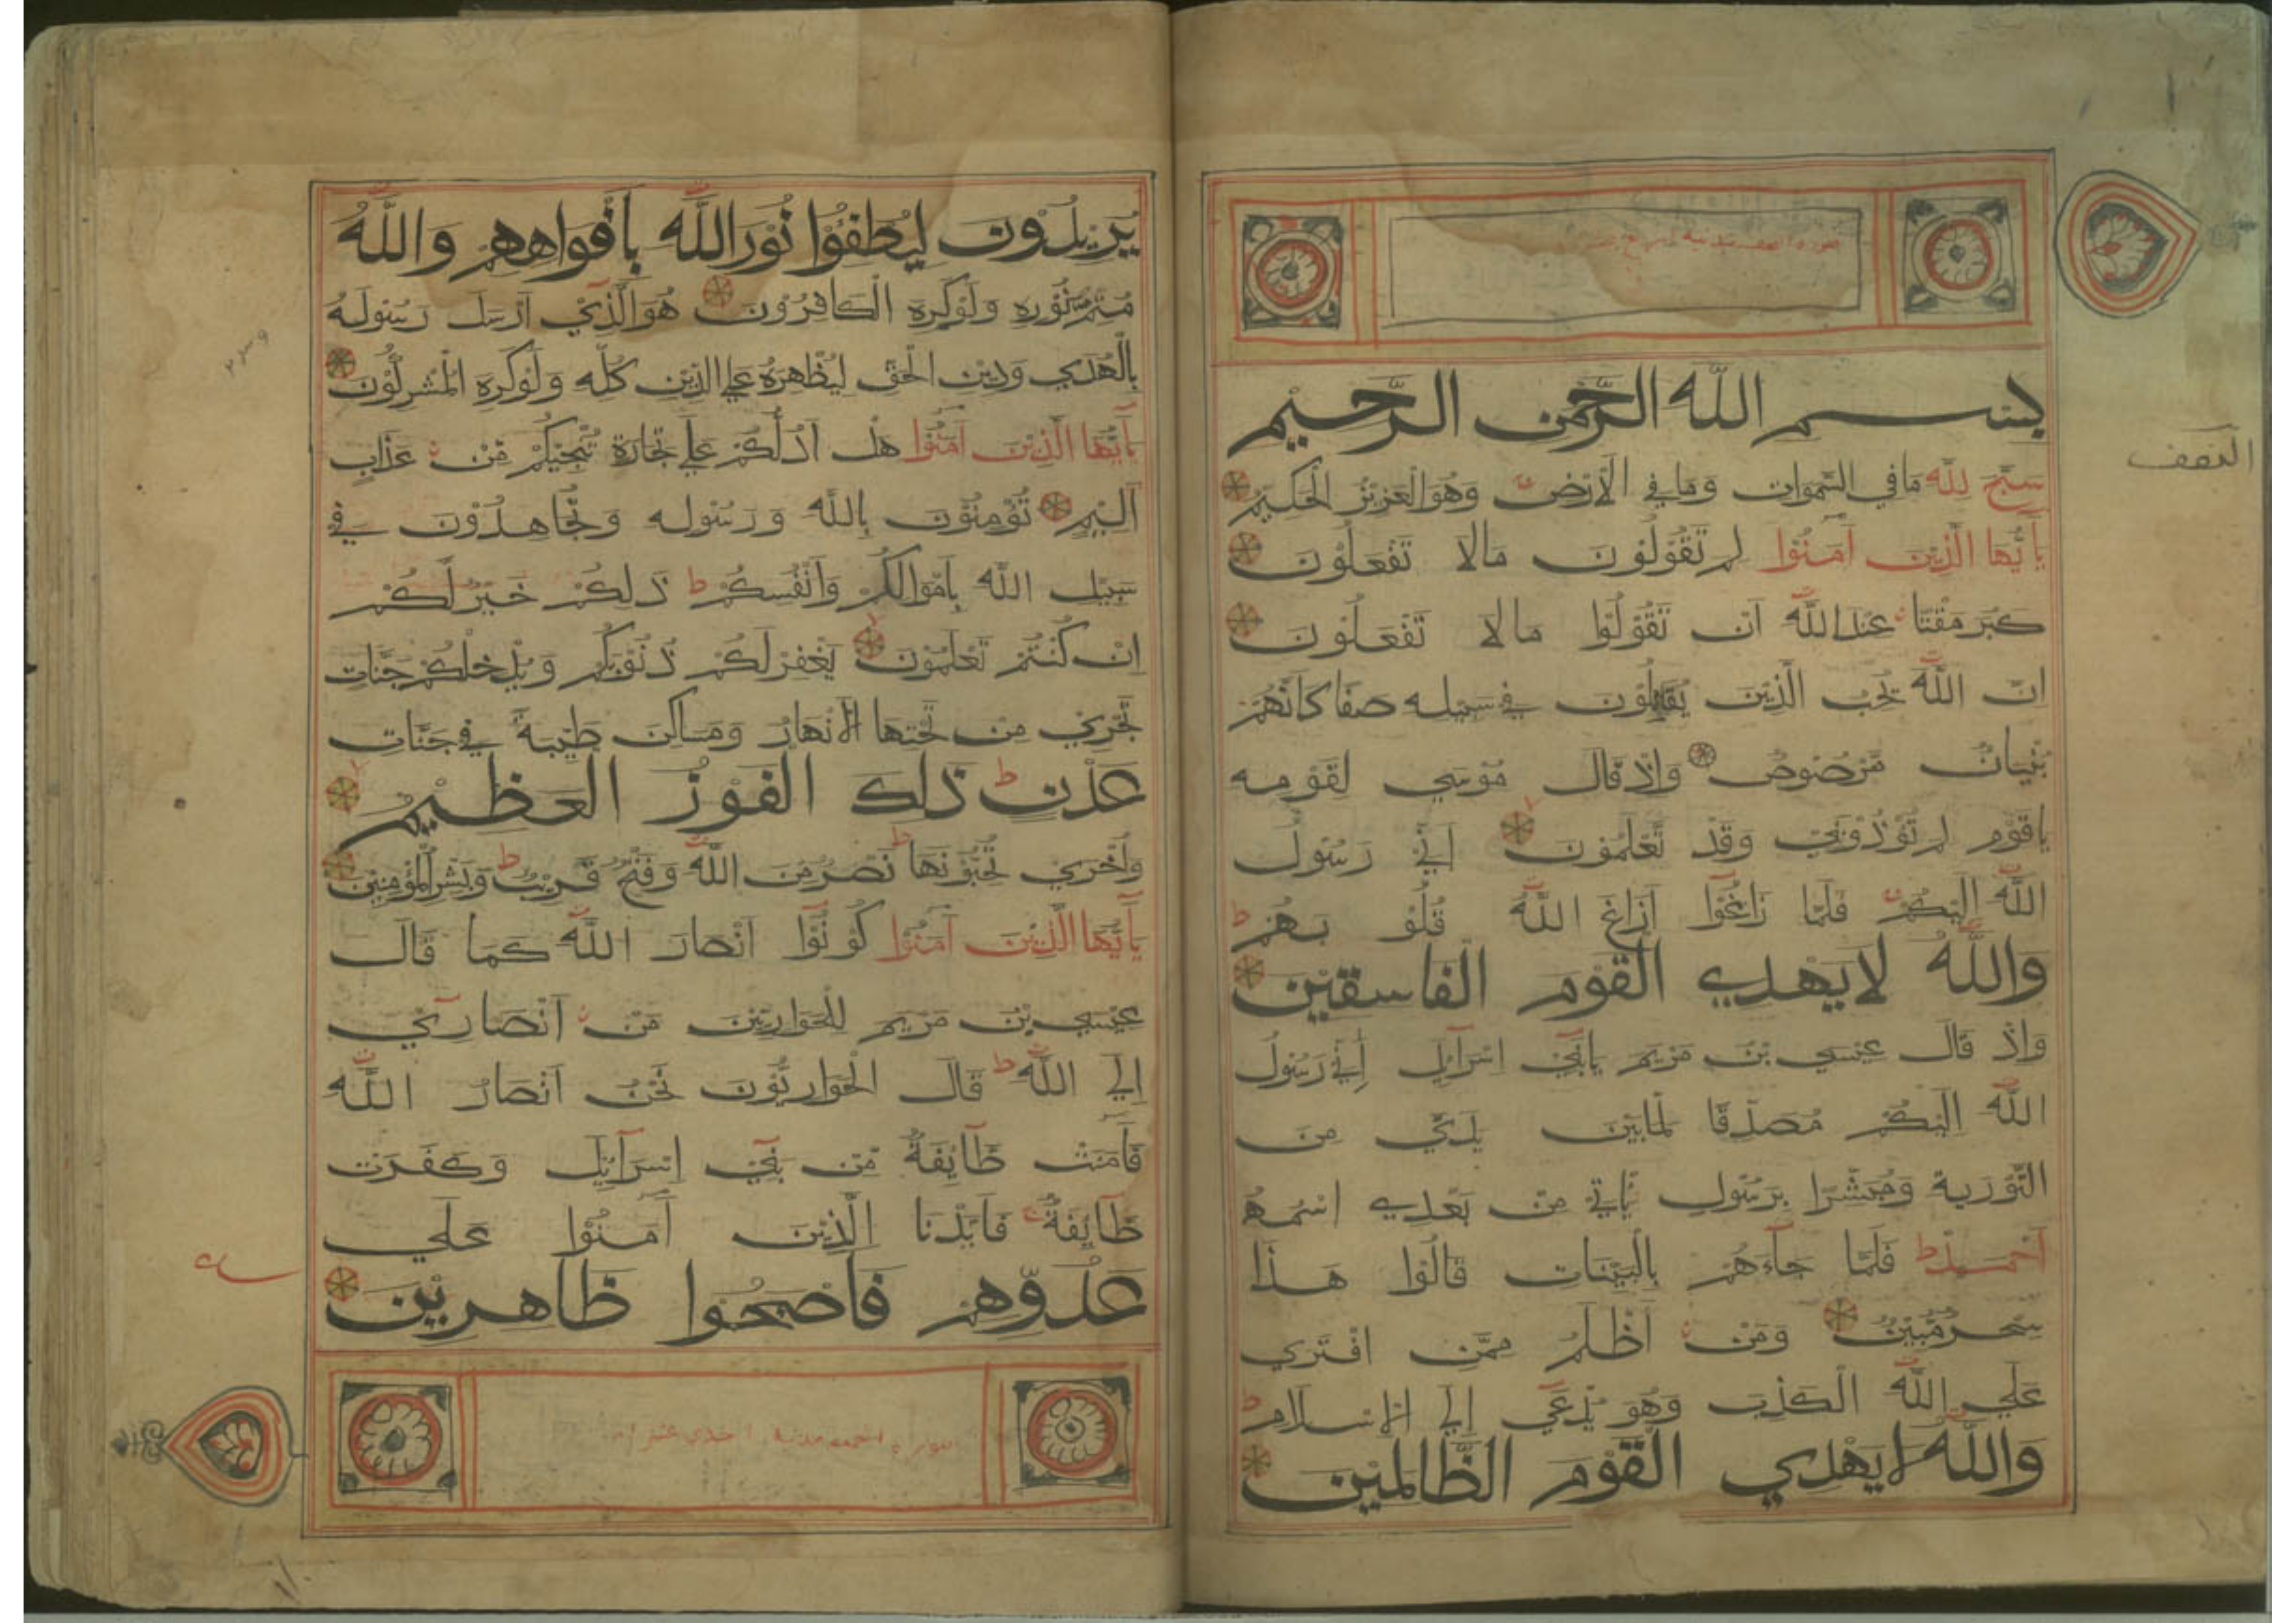 سورة الصف مدنية اربع عشر
بسم الله الرحمن الرحيم
سَبَّحَ لِلّٰه مَا في السَّمٰوَات وَمَا في الْاَرْض وَهُوَ الْعَزِيْزُ الْحَكِيْمُ
يَآ اَيُّهَا الَّذِيْنَ اٰمَنُوْا لِمَ تَقُوْلُوْنَ مَالَا تَفْعَلُوْنَ
كَبُرَ مَقْتًا عِنْدَ اللّٰه اَنْ تَقُوْلُوْا مَالَا تَفْعَلُوْنَ
اِنَّ اللّٰهَ يُحِبُّ الَّذِيْنَ يُقَاتِلُوْنَ في سَبِيْلِه صَفًا كَاَنَّهُمْ
بُنْيَانٌ مَّرْصُوْصٌ وَاِذْ قَالَ مُوْسي لِقَوْمِه
يَاقَوْمِ لِمَ تُؤْذُوْنَنِيْ وَقَدْ تَعْلَمُوْنَ اَنِّيْ رَسُوْلُ
اللّٰه اِلَيْكُمْ فَلَمَّا زَاغُوْا اَزَاغَ اللّٰهُ قُلُوْ بَهُمْ
وَاللّٰهُ لَايَهْدِي الْقَوْمَ الْفَاسِقِيْنَ
وَاِذْ قَالَ عِيْسي بْنَ مَرْيَمَ يَابَنِيْ اِسْرَآئِيلَ اِنِّيْ رَسُوْلُ
اللّٰه اِلَيْكُمْ مُصَدِّقًا لِمَابَيْنَ يَدَيَّ مِنَ
التَّوْرٰيةِ وَمُبَشِّرًا بِرَسُوْلٍ يَّاتِيْ مِنْ بَعْدِي اسْمُهُ
اَحْمَدُ فَلَمَّا جَآءَهُمْ بِالْبَيِّنَات قَالُوْا هٰذَا
سِحْرٌ مُّبِيْنٌ وَمَنْ اَظْلَمُ مِمَّنِ افْتَرٰي
عَلَي اللّٰهِ الْكَذِبَ وَهُوَ يُدْعٰي اِلَي الْاِسْلَامِ
وَاللّٰهُ لَايَهْدِي الْقَوْمَ الظَّالِمِيْنَ
النصف
يُرِيْدُوْنَ لِيُطْفِئُوْا نُوْرَ اللّٰه بِاَفْوَاهِهِمْ وَاللّٰهُ
مُتِمُّ نُوْرِهِ وَلَوْكَرِهَ الْكَافِرُوْنَ هُوَ الَّذِيْ اَرْسَلَ رَسُوْلَهُ
بِالْهُدٰي وَدِيْنِ الْحَقِّ لِيُظْهِرَهُ عَلَي الدِّيْنِ كُلِّه وَلَوْكَرِهَ الْمُشْرِكُوْنَ
يَآ اَيُّهَا الَّذِيْنَ اٰمَنُوْا هَلْ اَدُلُّكُمْ عَلٰي تِجَارَةٍ تُنْجِيْكُمْ مِّنْ عَذَابٍ
اَلِيْمٍ تُؤْمِنُوْنَ بِاللّٰه وَرَسُوْلِه وَتُجَاهِدُوْنَ في
سَبِيْلِ اللّٰه بِاَمْوَالِكُمْ وَاَنْفُسِكُمْ ذٰلِكُمْ خَيْرٌ لَّكُمْ
اِنْ كُنْتُمْ تَعْلَمُوْنَ يَغْفِرْلَكُمْ ذُنُوْبَكُمْ وَيُدْخِلْكُمْ جَنَّاتٍ
تَجْرِيْ مِنْ تَحْتِهَا الْاَنْهَارُ وَمَسَاكِنَ طَيِّبَةً في جَنَّاتِ
عَدْنٍ ذٰلِكَ الْفَوْزُ الْعَظِيْمُ
وَاُخْرٰي تُحِبُّوْنَهَا نَصْرٌ مِّنَ اللّٰهِ وَفَتْحٌ قَرِيْبٌ وَبَشِّرِ الْمُؤْمِنِيْنَ
يَآ اَيُّهَا الَّذِيْنَ اٰمَنُوْا كُوْنُوْا اَنْصَارَ اللّٰه كَمَا قَالَ
عِيْسَي بْنَ مَرْيَمَ لِلْحَوَارِيِّيْنَ مَنْ اَنْصَارِيْ
اِلَي اللّٰه قَالَ الْحَوَارِيُّوْنَ نَحْنُ اَنْصَارُ اللّٰه
فَاٰمَنَتْ طَآئِفَةٌ مِّنْ بَنِيْ اِسْرَآئِيْلَ وَكَفَرَتْ
طَآئِفَةٌ فَاَيَّدْنَا الَّذِيْنَ اٰمَنُوْا عَلٰي
عَدُوِّهِمْ فَاَصْبَحُوا ظَاهِرِيْنَ
سورة الجمعة مدنية احدي عشر اية